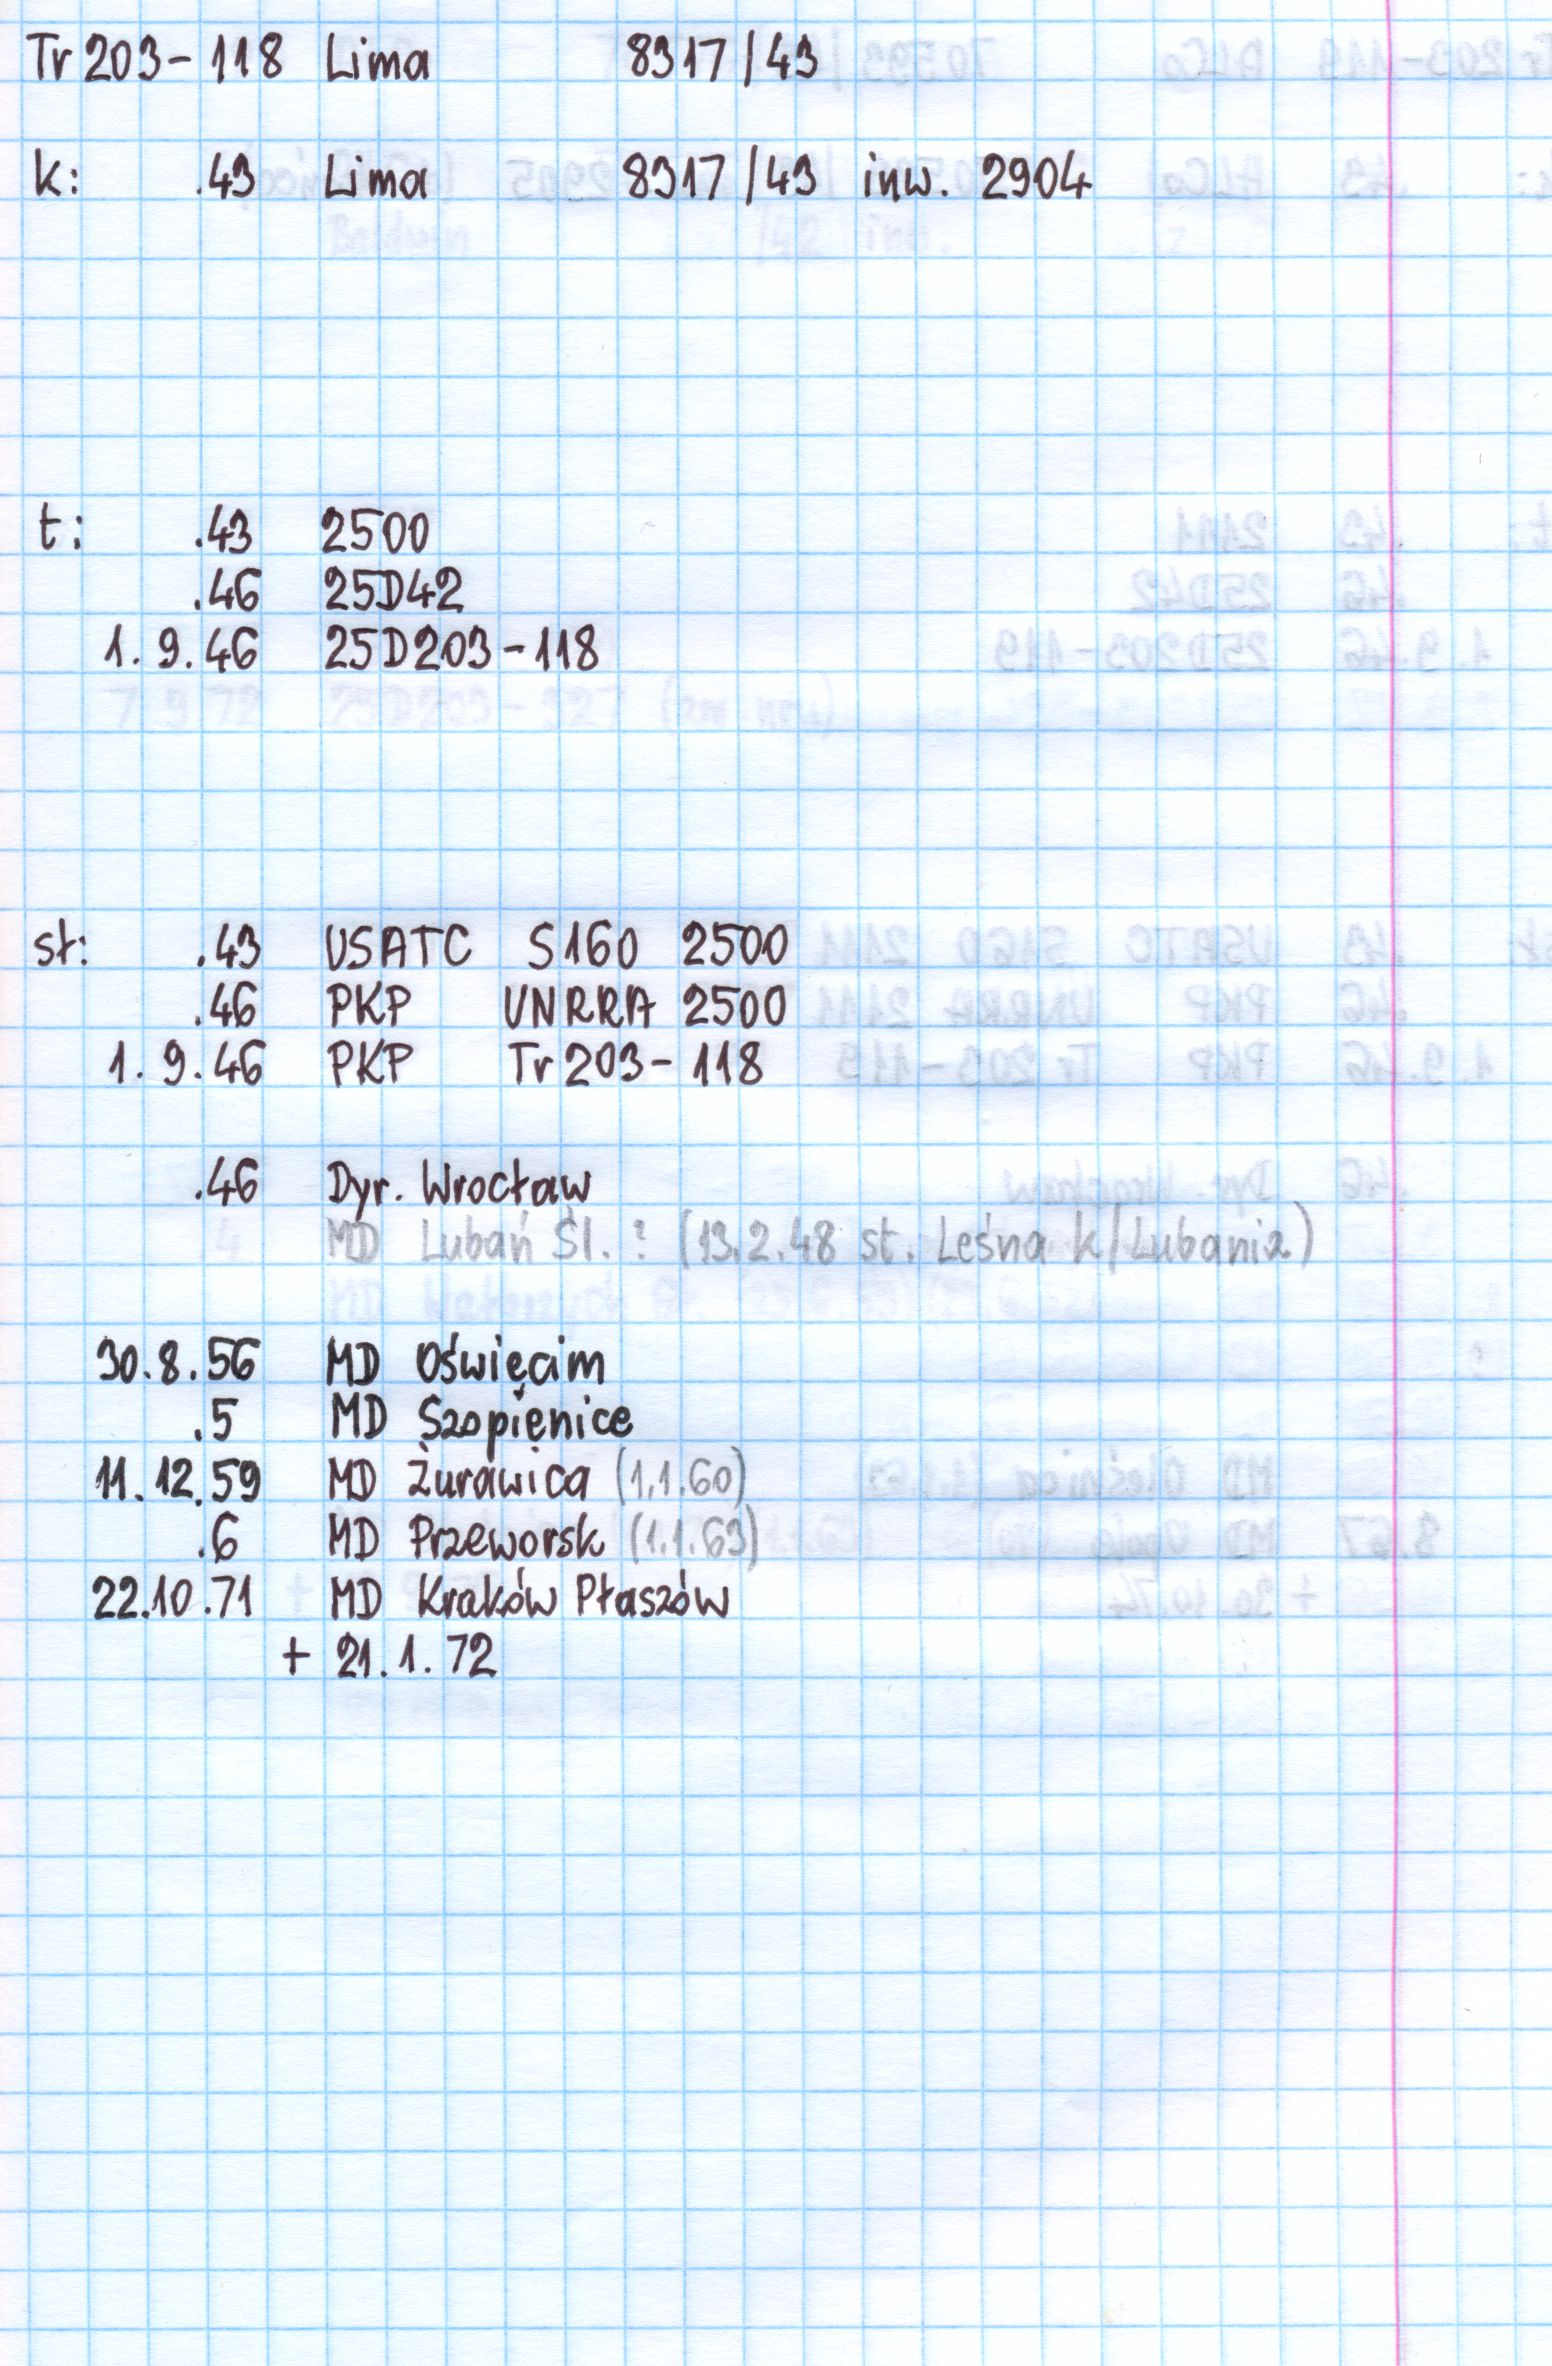 Tr 203-118 Lima 8317/43
k: .43 Lima 8317/43 inw. 2904
t: .43 2500
.46 25D42
1.9.46 25D203-118
st: .43 USATC S160 2500
.46 PKP UNRRA 2500
1.9.46 PKP Tr 203-118
.46 Dyr. Wrocław
MD Lubań Śl. ? (13.2.48 st. Leśna k/Lubania)
30.8.56 MD Oświęcim
.5 MD Szopienice
11.12.59 MD Żurawica (1.1.60)
.6 MD Przeworsk (1.1.63)
22.10.71 MD Kraków Płaszów
+ 21.1.72